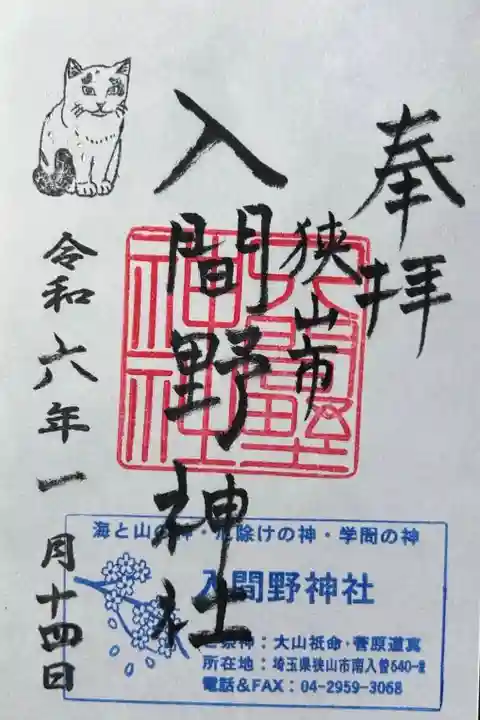 奉拝
狭山市
入間野神社
令和六年一月十四日
入間野神社
海と山の神・厄除けの神・学問の神
入間野神社
御祭神：大山祇命・菅原道真
所在地：埼玉県狭山市南入曽640-2
電話&FAX：04-2959-3068